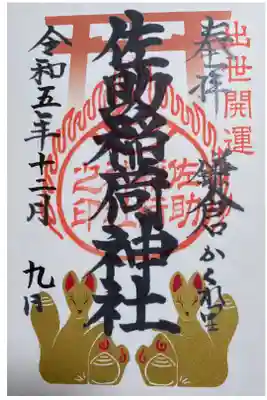 出世開運
奉拝
鎌倉かくれ里
佐助稲荷神社
佐助
之印
令和五年十二月 九日